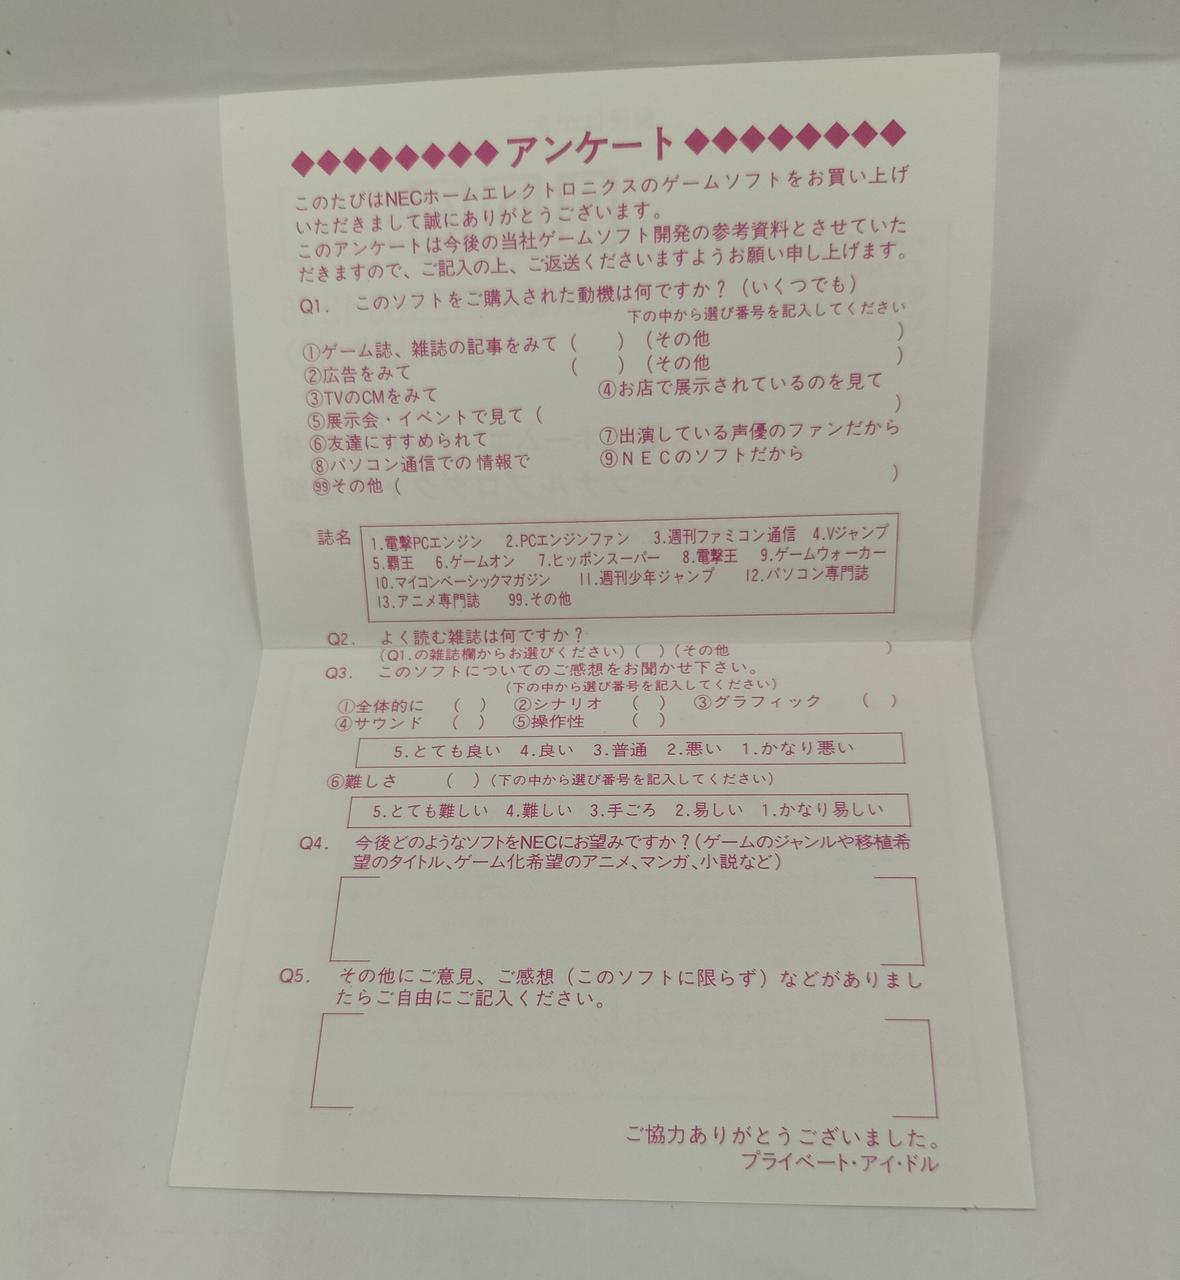 ◆◆◆◆◆◆◆◆アンケート◆◆◆◆◆◆◆◆
このたびはNECホームエレクトロニクスのゲームソフトをお買い上げ
いただきまして誠にありがとうございます。
このアンケートは今後の当社ゲームソフト開発の参考資料とさせていた
だきますので、ご記入の上、ご返送くださいますようお願い申し上げます。
Q1. このソフトをご購入された動機は何ですか？（いくつでも）
下の中から選び番号を記入してください
①ゲーム誌、雑誌の記事をみて（　　）（その他　　　　　　）
②広告をみて　　　　　　　　（　　）（その他　　　　　　）
③TVのCMをみて　④お店で展示されているのを見て
⑤展示会・イベントで見て（　　　　　　　　　　　　）
⑥友達にすすめられて　⑦出演している声優のファンだから
⑧パソコン通信での情報で　⑨NECのソフトだから
㊾その他（　　　　　　　　　　　　　　　　　）
誌名 1.電撃PCエンジン 2.PCエンジンファン 3.週刊ファミコン通信 4.Vジャンプ
5.覇王 6.ゲームオン 7.ヒッポンスーパー 8.電撃王 9.ゲームウォーカー
10.マイコンベーシックマガジン 11.週刊少年ジャンプ 12.パソコン専門誌
13.アニメ専門誌 99.その他
Q2. よく読む雑誌は何ですか？
（Q1.の雑誌欄からお選びください）（　）（その他　　　　　　）
Q3. このソフトについてのご感想をお聞かせ下さい。
（下の中から選び番号を記入してください）
①全体的に （　） ②シナリオ （　） ③グラフィック （　）
④サウンド （　） ⑤操作性 （　）
5.とても良い 4.良い 3.普通 2.悪い 1.かなり悪い
⑥難しさ （　）（下の中から選び番号を記入してください）
5.とても難しい 4.難しい 3.手ごろ 2.易しい 1.かなり易しい
Q4. 今後どのようなソフトをNECにお望みですか？（ゲームのジャンルや移植希
望のタイトル、ゲーム化希望のアニメ、マンガ、小説など）
Q5. その他にご意見、ご感想（このソフトに限らず）などがありまし
たらご自由にご記入ください。
ご協力ありがとうございました。
プライベート・アイ・ドル